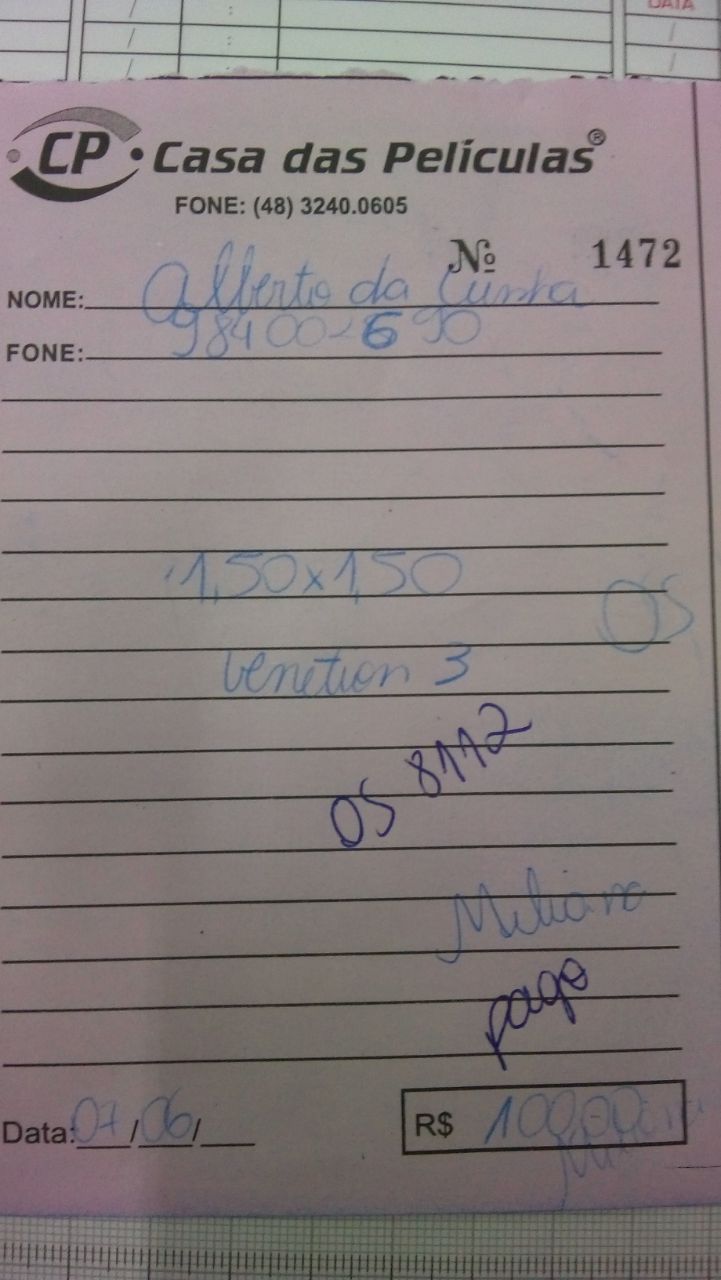 DATA
CP • Casa das Películas®
FONE: (48) 3240.0605
Nº 1472
NOME: Alberto da Cunha
FONE: 98400-6590
1,50x1,50
OS
Venetian 3
OS 8112
pago
Data: 07/06/
R$ 100,00